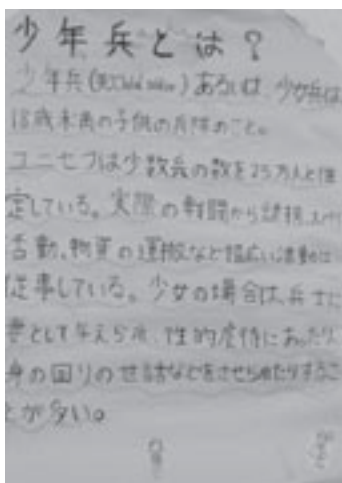 少年兵とは？
少年兵(英:Child soldier)あるいは、少女兵は
18歳未満の子供の兵隊のこと。
ユニセフは少数兵の数を25万人と推
定している。実際の戦闘から
活動、物資の運搬など幅広い活動に
従事している。少女の場合は、兵士に
妻として与えられ、性的虐待にあったり、
身の回りの世話などをさせられたりするこ
とが多い。